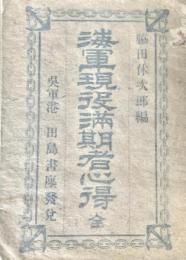 脇田休次郎編
海軍現役満期者心得 全
呉軍港 田島書店發兌